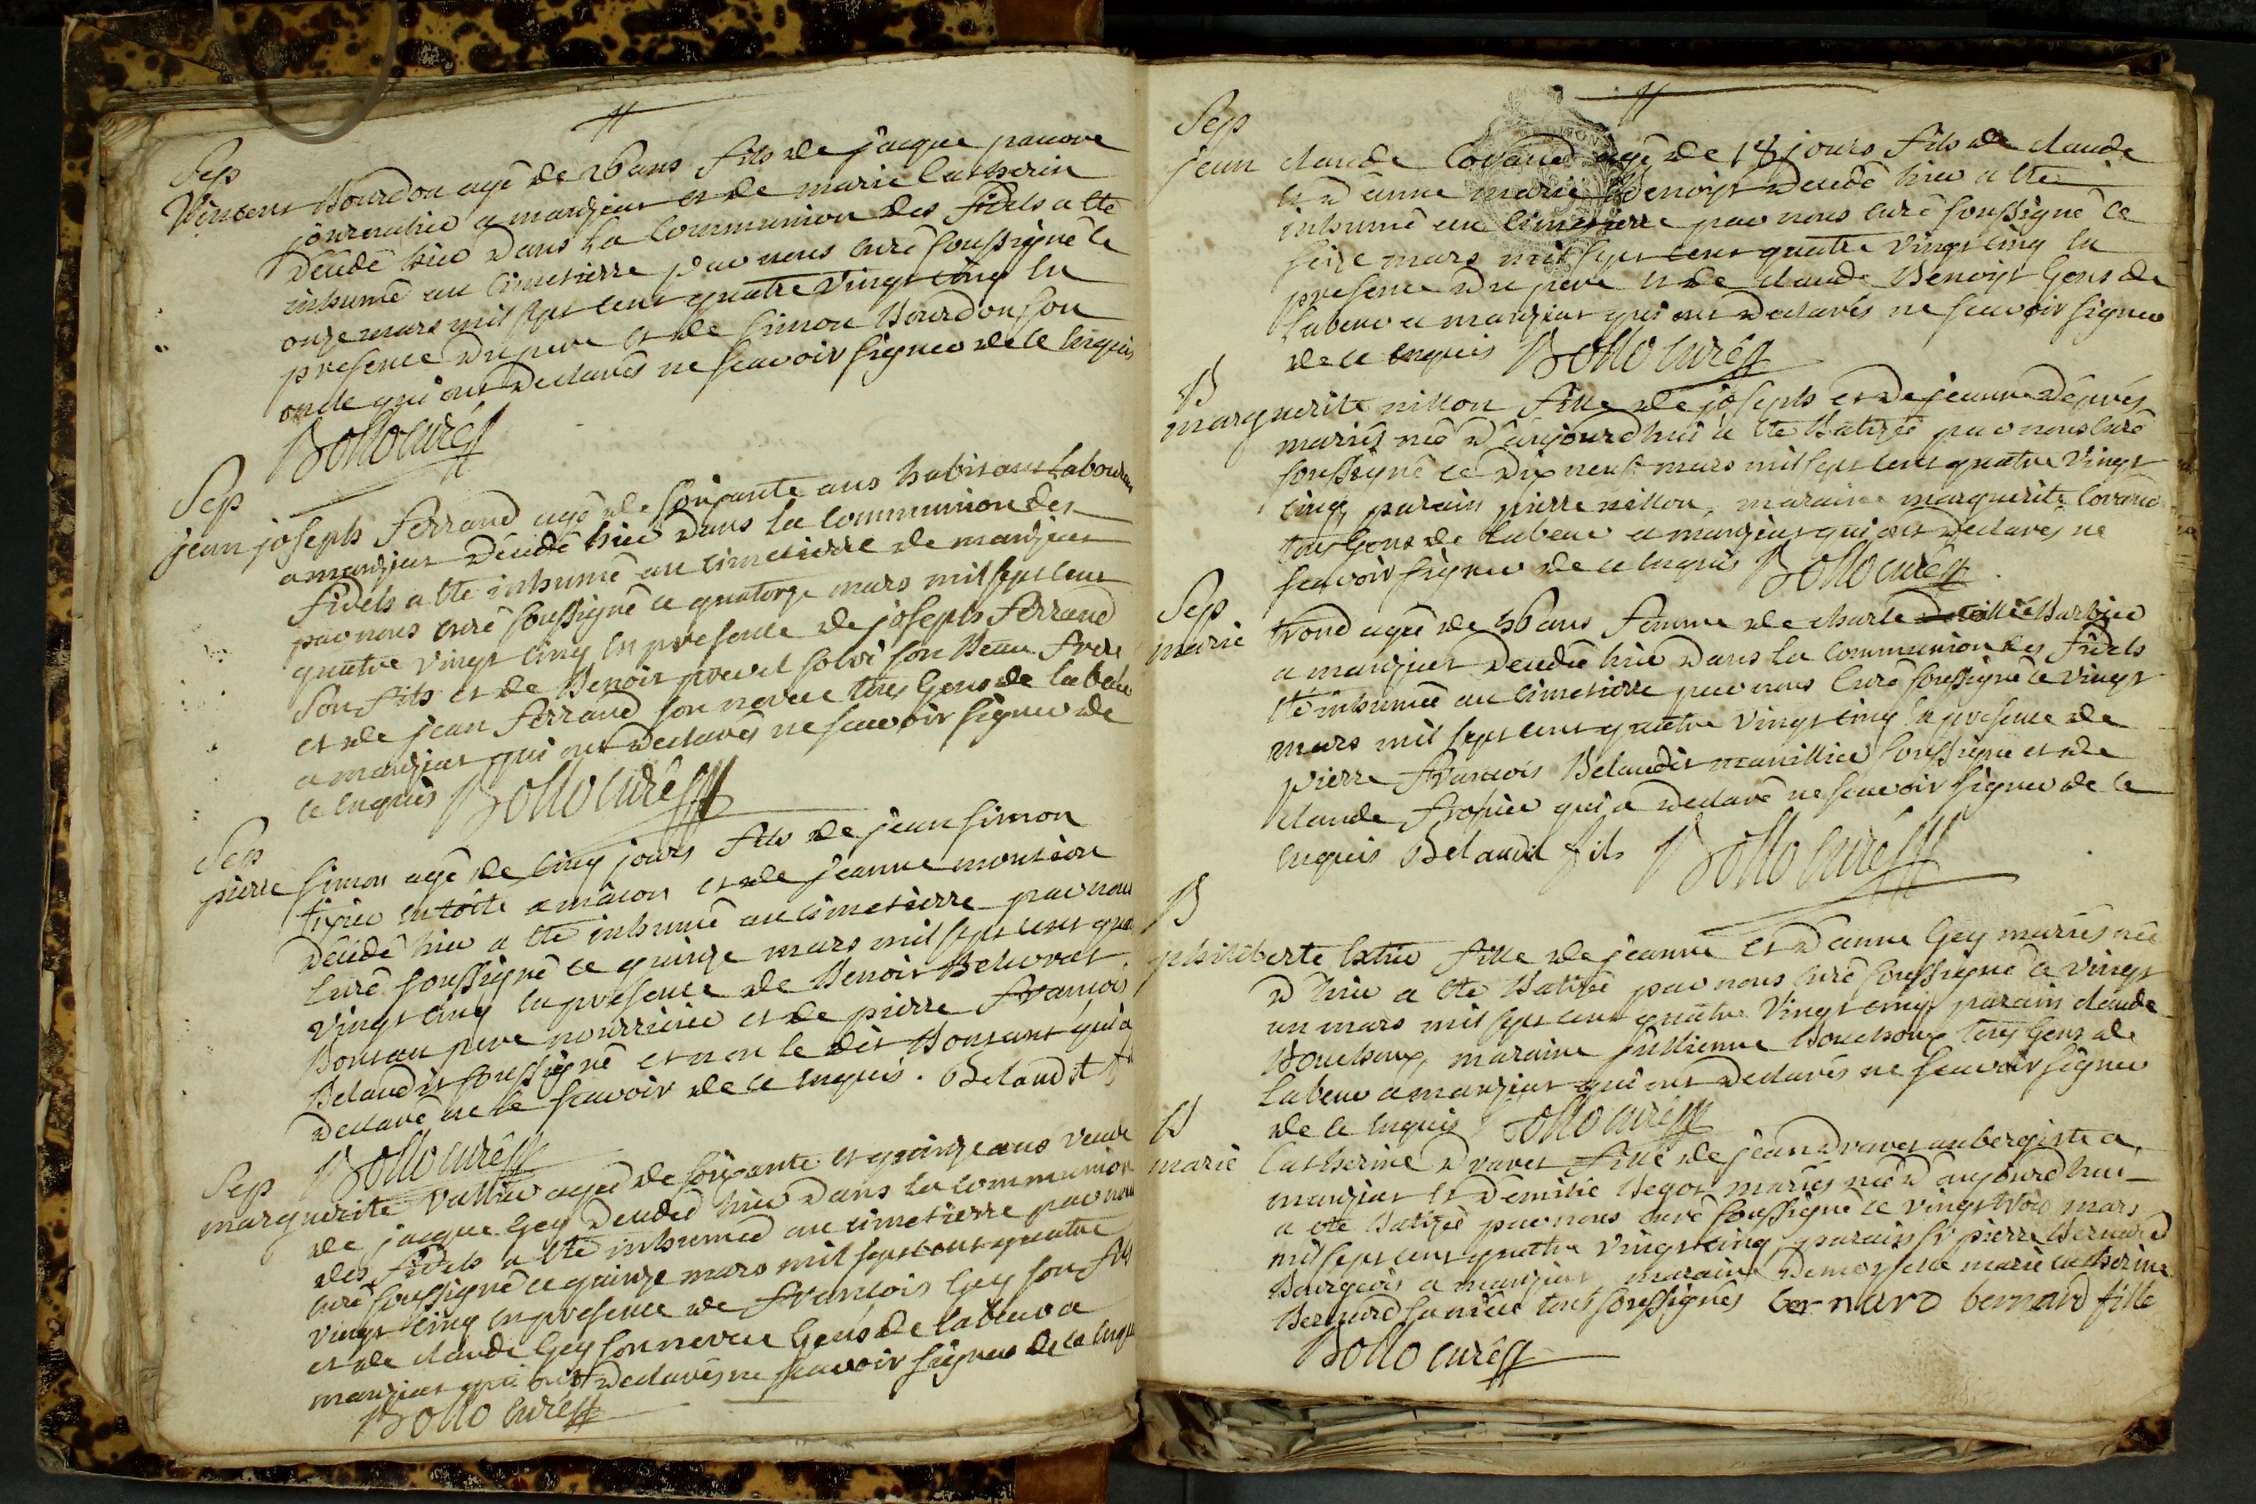 Sep
Vincent Bourdon agé de 26 ans fils de jacque pauvre
journalier a manziat et de marie Catherin
décédé hier dans la Communion des fidels a été
inhumé au cimetierre par nous curé soussigné le
onze mars mil sept cent quatre vingt cinq en
presence du pere et de simon Bourdon son
oncle qui ont declarés ne scavoir signer de ce enquis
Bollo curé
Sep
jean joseph ferrand agé de soixante ans habitant laboureur
a manziat décédé hier dans la communion des
fidels a été inhumé au cimetierre de manziat
par nous curé soussigné ce quatorze mars mil sept cent
quatre vingt cinq en presence de joseph ferrand
son fils et de Benoit son Beau frere
et de jean ferrand son neveu tous Gens de labeur
a manziat qui ont declarés ne scavoir signer de
ce enquis Bollo curé
Sep
pierre simon agé de cinq jours fils de jean simon
tixier en toile a mâcon et de jeanne
décédé hier a été inhumé au cimetierre par nous
Curé soussigné ce quinze mars mil sept cent quatre
vingt cinq en presence de Benoit
pere nourricier et de pierre francois
Belaudit soussigné et non le dit qui a
declaré ne le scavoir de ce enquis. Belaudit fils
Bollo curé
Sep
marguerite Vallier agée de soixante et quinze ans veuve
de jacque Gey decedée hier dans la communion
des fidels a été inhumée au cimetierre par nous
Curé soussigné ce quinze mars mil sept cent quatre
vingt cinq en presence de francois Gey son fils
et de claude Gey son neveu Gens de labeur a
manziat qui ont declarés ne scavoir signer de ce enquis
Bollo curé
Sep
jean claude Corand agé de 18 jours fils de claude
et d'anne marie Benoist decedé hier a été
inhumé au cimetierre par nous curé soussigné ce
seize mars mil sept cent quatre vingt cinq en
presence du pere et de claude Benoist Gens de
labeur a manziat qui ont declarés ne scavoir signer
de ce enquis Bollo curé
B
marguerite nillon fille de joseph et de jeanne Désprés
mariés née d'aujourdhui a été Batisée par nous curé
soussigné ce dix neuf mars mil sept cent quatre vingt
cinq, parain pierre nillon, maraine marguerite Corand
tous Gens de labeur a manziat qui ont declarés ne
scavoir signer de ce enquis Bollo curé
Sep
marie agée de 36 ans femme de charle Barbier
a manziat decedée hier dans la communion des fidels
été inhumée au cimetierre par nous Curé soussigné ce vingt
mars mil sept cent quatre vingt cinq en presence de
pierre francois Belaudit manillier soussigné et de
claude fropier qui a declaré ne scavoir signer de ce
enquis Belaudit fils Bollo curé
B
philiberte fille de jeanne et d'anne Gey mariés née
d'hier a été Batisée par nous curé soussigné ce vingt
un mars mil sept cent quatre vingt cinq parain claude
Bouchoux, maraine jullienne Bouchoux tous Gens de
labeur a manziat qui ont declarés ne scavoir signer
de ce enquis Bollo curé
B
marie Catherine Dravet fille de jean Dravet aubergiste a
manziat et d'emilie Begot mariés née d'aujourdhui
a été Batisée par nous curé soussigné ce vingt trois mars
mil sept cent quatre vingt cinq, parain sr pierre Bernard
Bourgeois a manziat, maraine Demoiselle marie catherine
Bernard sa niéce tous soussignés bernard bernard fille
Bollo curé